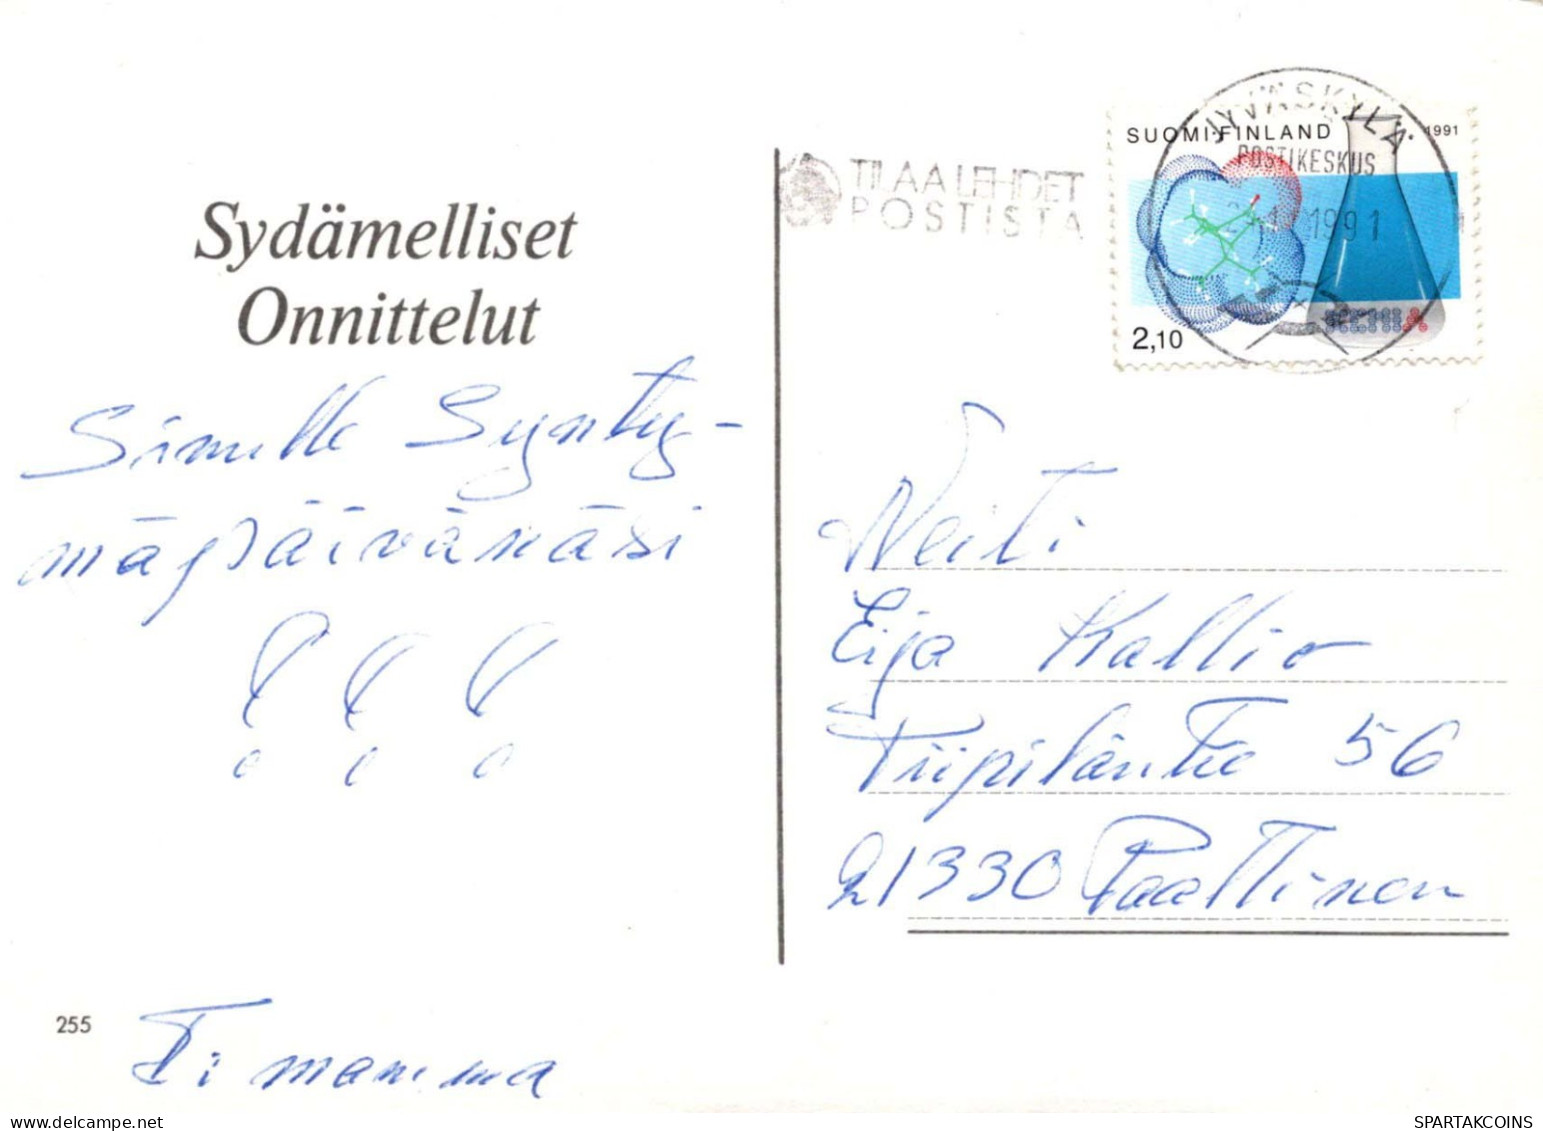 Sydämelliset
Onnittelut
Sinulle Synty-
mäpäivänäsi
! ! !
255
Ti mamma
TILAA LEHDET
POSTISTA
JYVÄSKYLÄ
POSTIKESKUS
1991
SUOMI·FINLAND
1991
KEMIA
2,10
Neiti
Eija Kallio
Tiipiläntie 56
21330 Paattinen
SPARTAKCOINS